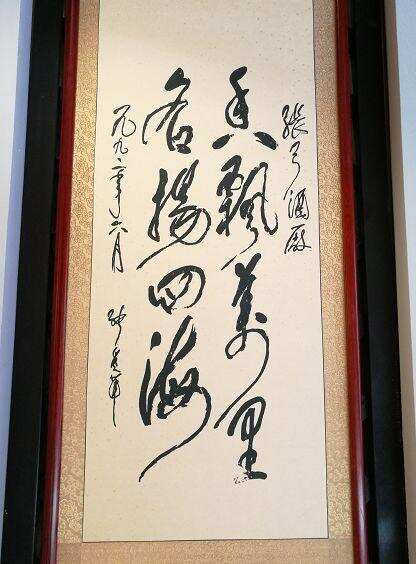 张弓酒厰
香飘万里
名扬四海
一九九二年六月